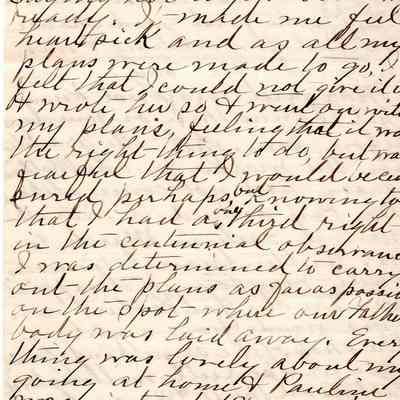 ready. It made me feel
heart sick and as all my
plans were made to go, I
felt that I could not give it u
& wrote her so & went on with
my plans, feeling that it wa
the right thing to do, but wa
fearful that I would be cen
sured perhaps but knowing to
that I had a one third right
in the centennial observanc
I was determined to carry
out the plans as far as possib
on the spot where our Father
body was laid away. Every
thing was lovely about my
going at home & Pauline